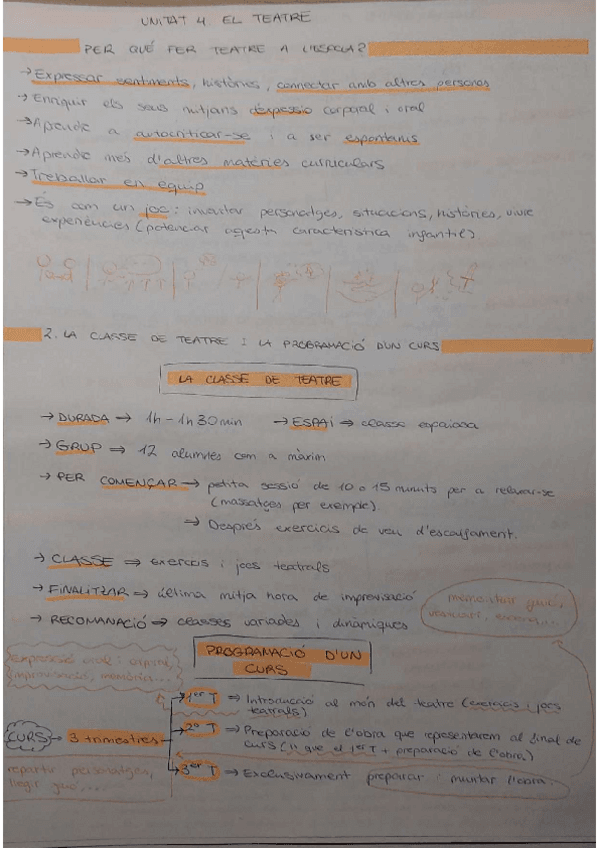 UNITAT 4. EL TEATRE
PER QUÈ FER TEATRE A L'ESCOLA?
→ Expressar sentiments, històries, connectar amb altres persones
→ Enriquir els seus mitjans d'expressió corporal i oral
→ Aprendre a autocriticar-se i a ser espontanis
→ Aprendre més d'altres matèries curriculars
→ Treballar en equip
→ És com un joc: inventar personatges, situacions, històries, viure
experiències (potenciar aquesta característica infantil)
2. LA CLASSE DE TEATRE I LA PROGRAMACIÓ D'UN CURS
LA CLASSE DE TEATRE
→ DURADA → 1h - 1h 30min → ESPAI → classe espaiosa
→ GRUP → 12 alumnes com a màxim
→ PER COMENÇAR → petita sessió de 10 o 15 minuts per a relaxar-se
(massatges per exemple).
→ Després exercicis de veu d'escalfament.
→ CLASSE → exercicis i jocs teatrals
→ FINALITZAR → última mitja hora de improvisació
→ RECOMANACIÓ → classes variades i dinàmiques
memoritzar guió,
vestuari, escena...
PROGRAMACIÓ D'UN
CURS
Expressió oral i corporal,
improvisació, memòria...
CURS → 3 trimestres
→ 1er T → Introducció al món del teatre (exercicis i jocs
teatrals)
→ 2º T → Preparació de l'obra que representarem al final de
curs (= que el 1er T + preparació de l'obra)
→ 3er T → Exclusivament preparar i muntar l'obra.
repartir personatges,
llegir guió,...